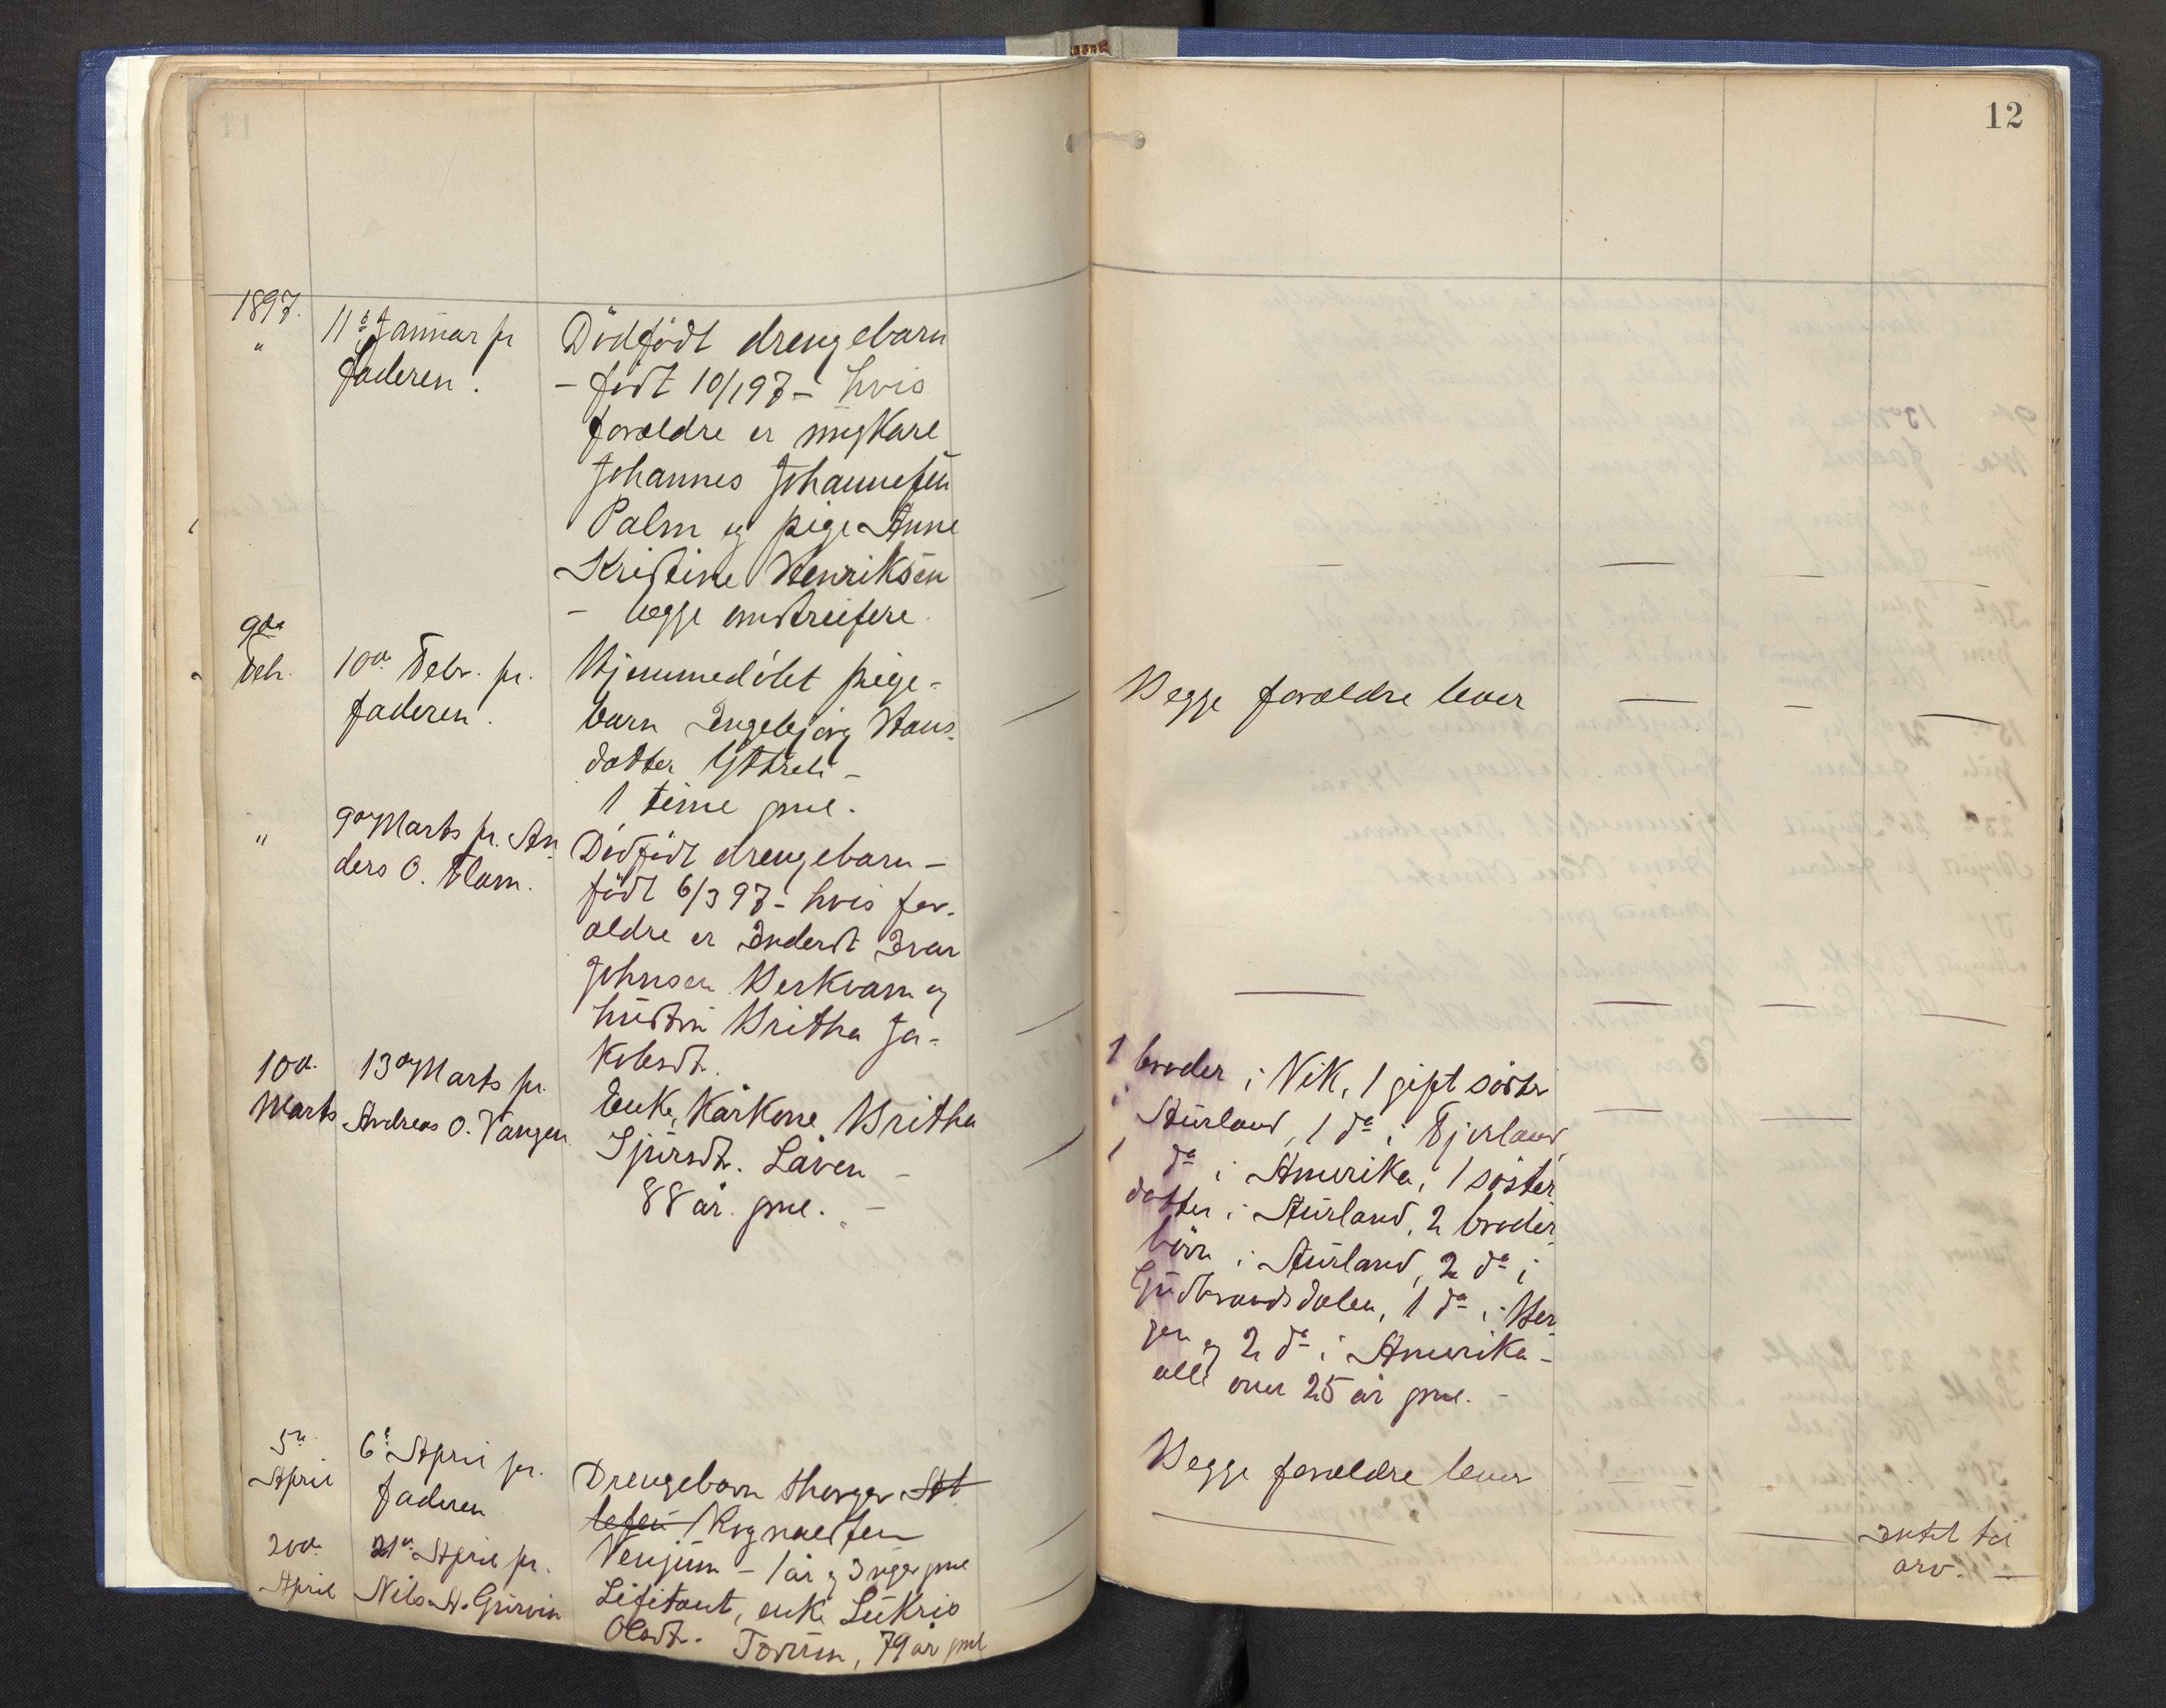 12
1897.
"
11te Januar pr
faderen.
Dödfödt drengebarn
– födt 10/1 97 – hvis
forældre er ungkarl
Johannes Johannesen
Palm og pige Anne
Kristine Henriksen
– begge omstreifere.
9de
Febr.
10de Febr. pr.
faderen.
Hjemmedöbt pige-
barn Engebjörg Hans-
datter
1 time gml.
Begge forældre lever
"
9de Marts pr. An-
ders O. Flam.
Dödfödt drengebarn –
födt 6/3 97 – hvis for-
ældre er Inderst Ivar
Johnsen Berkvam og
hustru Britha Ja-
kobsdt.
10de
Marts
13de Marts pr.
Andreas O. Vangen
Enke, Kårkone Britha
Sjursdt. Låven –
88 år gml. –
1 broder i Vik, 1 gift söster
i Aurland, 1 do i Fjerland,
1 do i Amerika, 1 söster-
datter i Aurland, 2 broder-
börn i Aurland, 2 do i
Gudbrandsdalen, 1 do i Ber-
gen og 2 do i Amerika –
alle over 25 år gml. –
5te
April
6te April pr.
faderen
Drengebarn Thorger
Rognaldsen
Venjum – 1 år og 3 uger gml
Begge forældre lever
20de
April
21de April pr.
Nils A. Gurvin
Legitant, enke Lukris
Olsdt. Tovum, 79 år gml
Intet til
arv. –